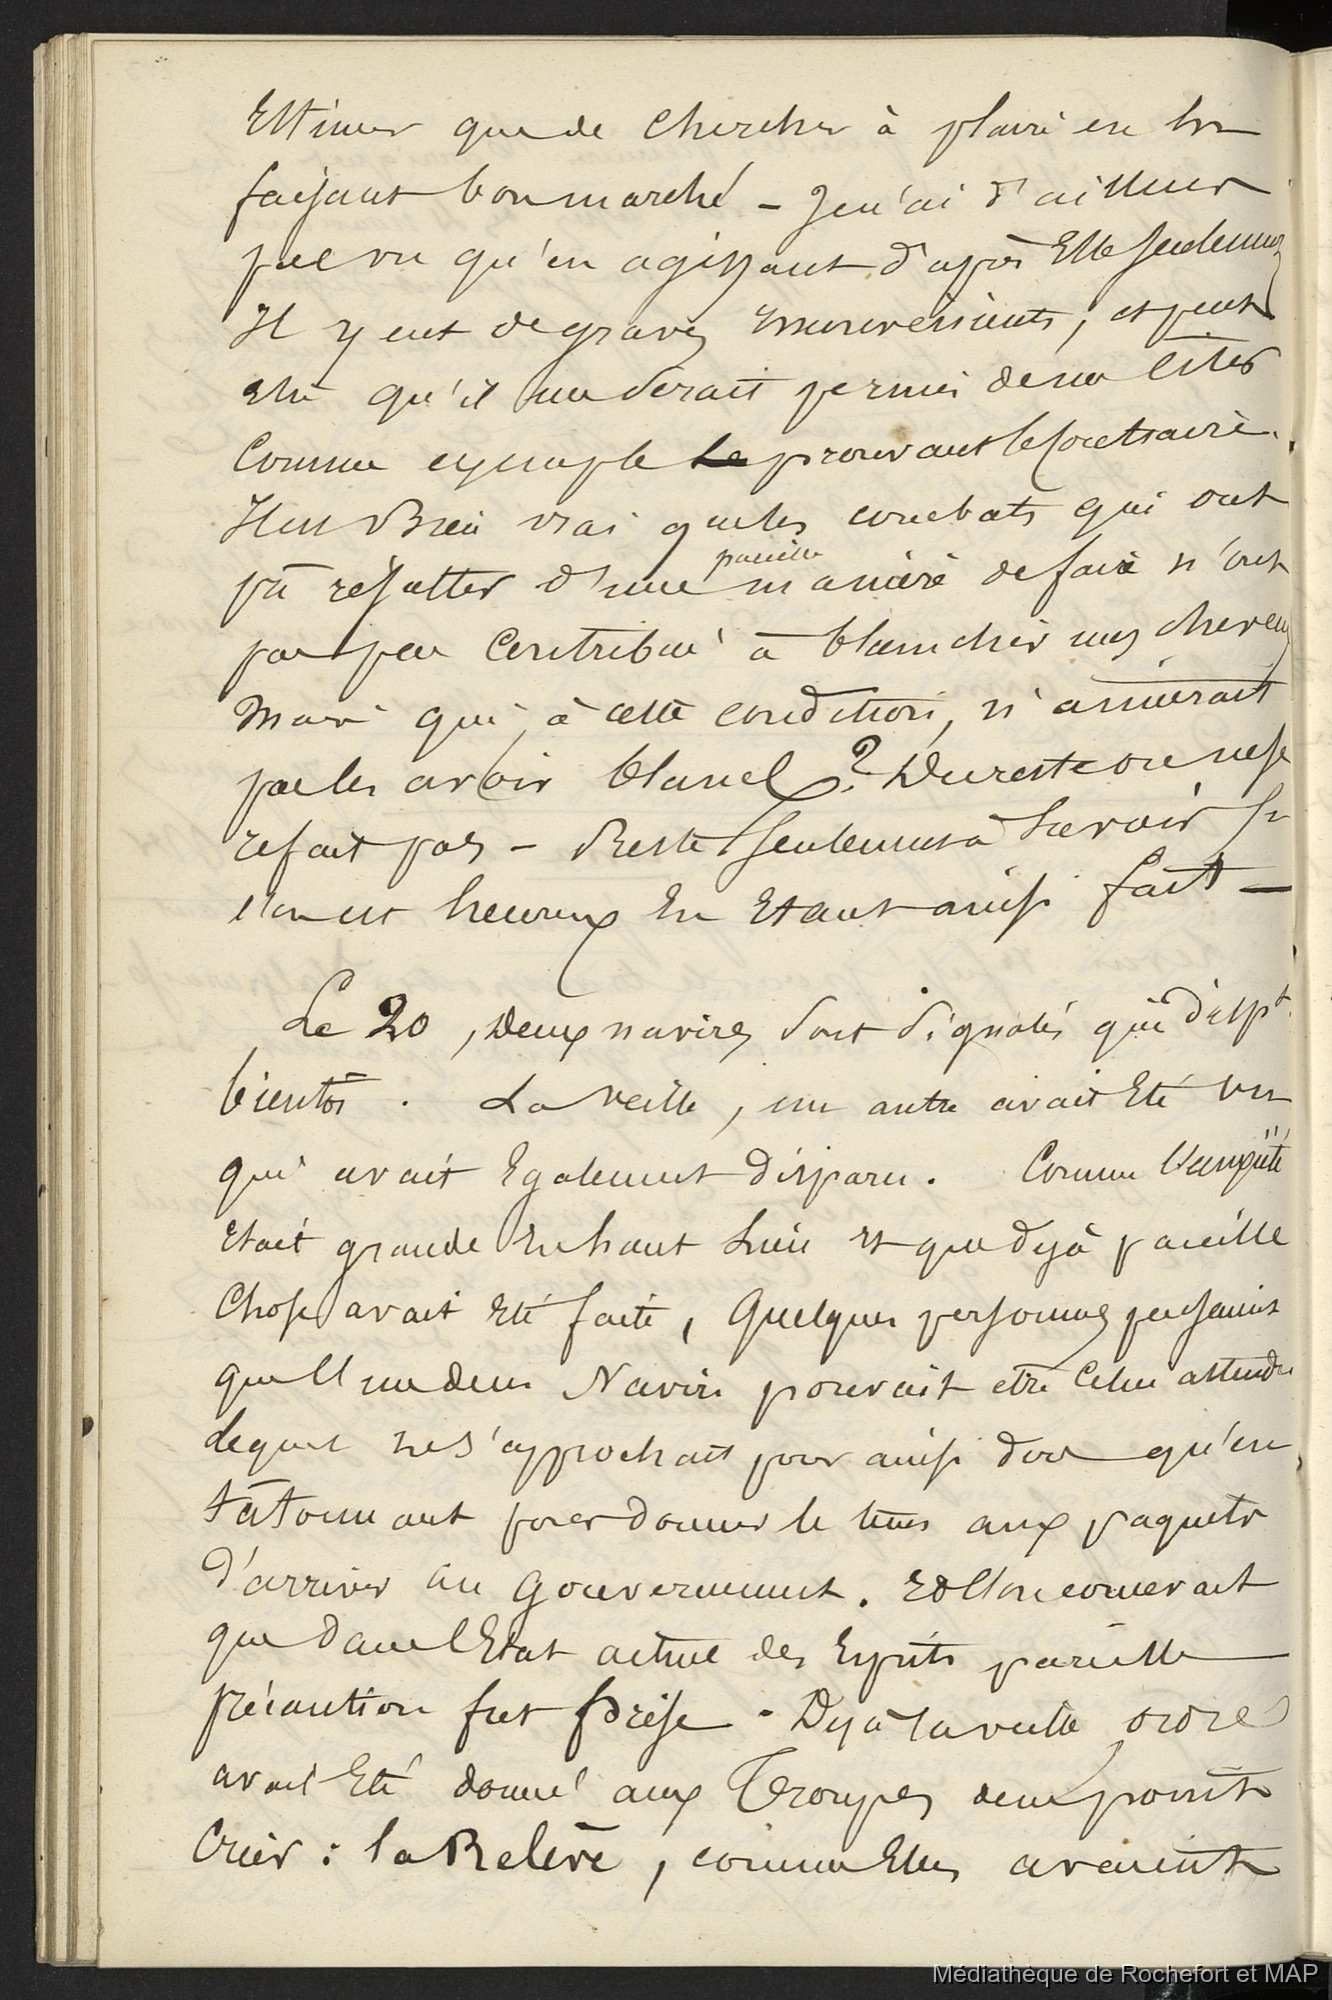 Estimer que de chercher à plaire en en
faisant bon marché – Je n'ai d'ailleurs
pas vu qu'en agissant d'après Elle seulement
Il y eut de graves inconvénients, et peut
etre qu'il me serait permis de me citer
Comme exemple le prouvant le contraire.
Il est Bien vrai que les combats qui ont
pû résulter d'une pareille manière de faire n'ont
pas peu contribué à blanchir mes cheveux
Mais qui, à cette condition, n'aimerait
pas les avoir blancs ? Du reste on ne se
refait pas – Reste seulement à Savoir si
l'on est heureux En Etant ainsi fait –
Le 20, Deux navires sont signalés qui disp.t
bientôt. La veille, un autre avait Eté vu
qui avait Egalement disparu. Comme l'anxiété
Etait grande En haut Lieu et que déjà pareille
Chose avait Eté faite, Quelques personnes pensaient
que l'un deux Navires pouvait etre Celui attendu
Lequel ne s'approchait pour ainsi dire qu'en
tâtonnant pour donner le tems aux paquets
d'arriver au Gouvernement. Et l'on concevait
que dans l'Etat actuel des Esprits pareille
précaution fut prise. Déjà la veille ordre
avait Eté donné aux Troupes de ne point
Crier : la Relève, comme Elles avaient
Médiathèque de Rochefort et MAP